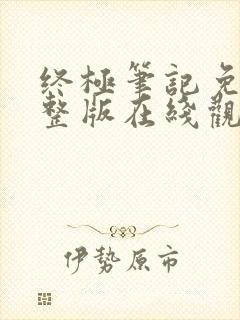 終極筆記免
整版在綫觀
伊勢原市